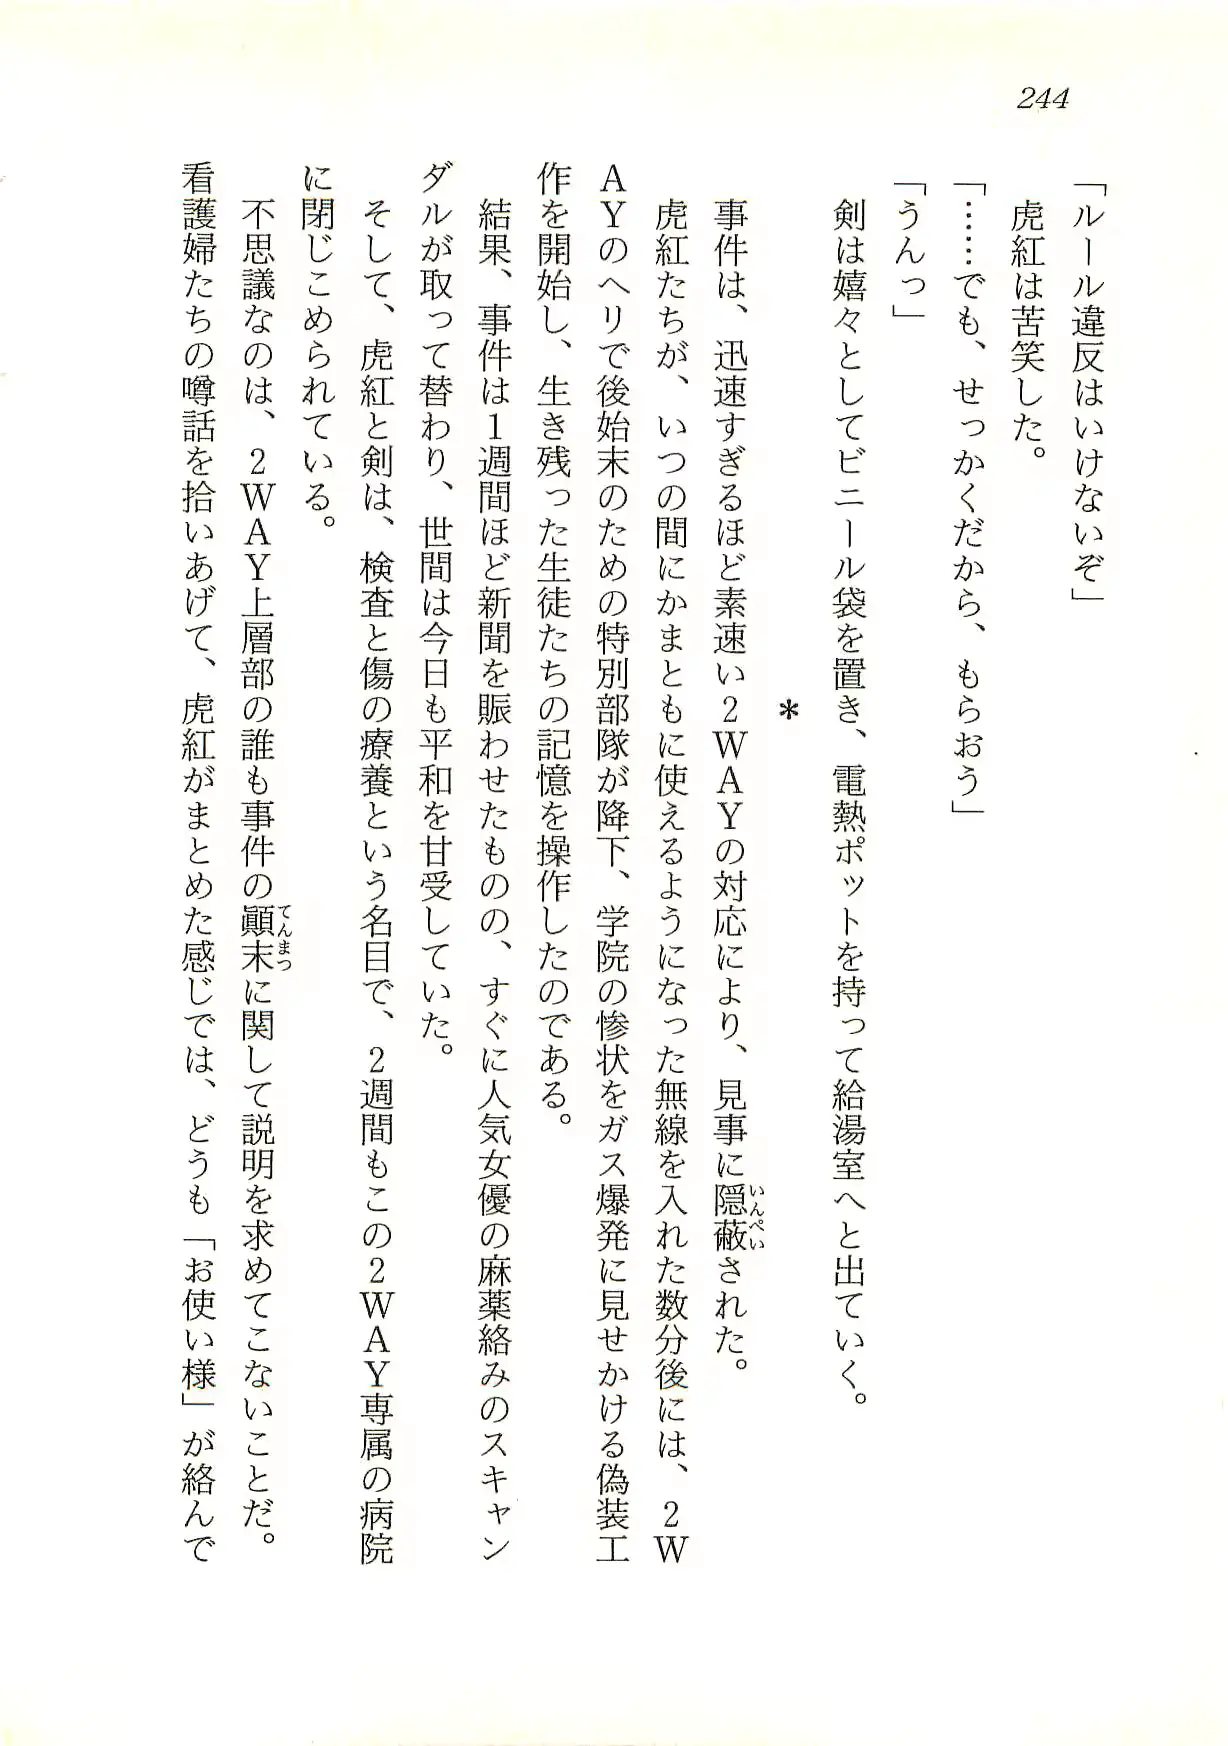 244
「ルール違反はいけないぞ」
虎紅は苦笑した。
「……でも、せっかくだから、もらおう」
「うんっ」
剣は嬉々としてビニール袋を置き、電熱ポットを持って給湯室へと出ていく。
＊
事件は、迅速すぎるほど素速い２ＷＡＹの対応により、見事に隠蔽された。
いんぺい
虎紅たちが、いつの間にかまともに使えるようになった無線を入れた数分後には、２Ｗ
ＡＹのヘリで後始末のための特別部隊が降下、学院の惨状をガス爆発に見せかける偽装工
作を開始し、生き残った生徒たちの記憶を操作したのである。
結果、事件は１週間ほど新聞を賑わせたものの、すぐに人気女優の麻薬絡みのスキャン
ダルが取って替わり、世間は今日も平和を甘受していた。
そして、虎紅と剣は、検査と傷の療養という名目で、２週間もこの２ＷＡＹ専属の病院
に閉じこめられている。
不思議なのは、２ＷＡＹ上層部の誰も事件の顚末に関して説明を求めてこないことだ。
てんまつ
看護婦たちの噂話を拾いあげて、虎紅がまとめた感じでは、どうも「お使い様」が絡んで